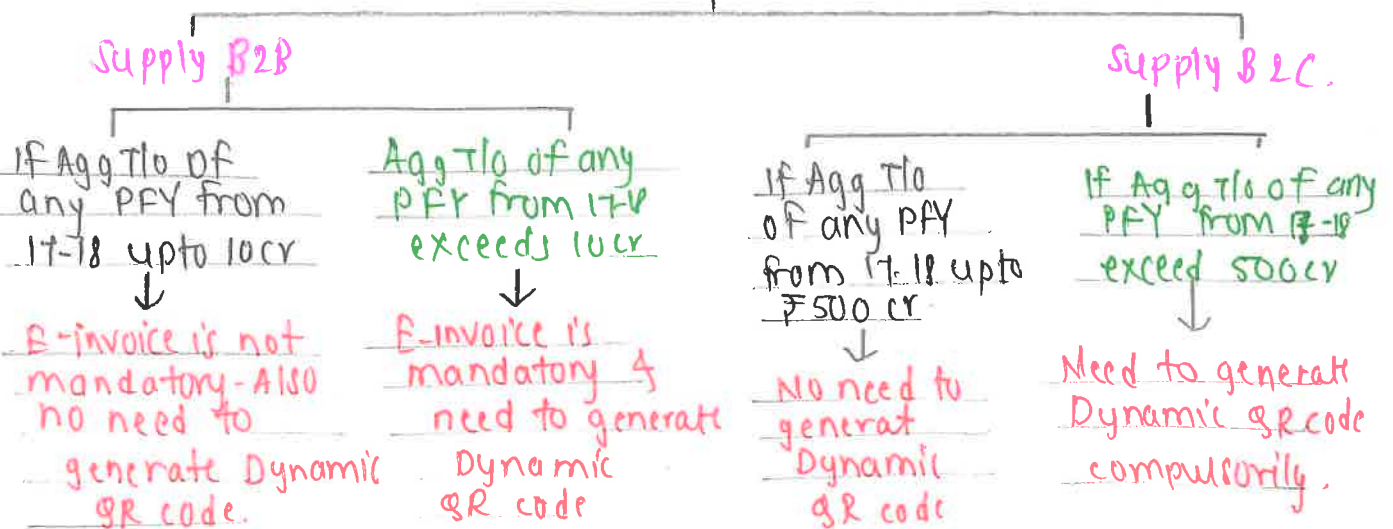 Supply B2B
If Agg T/o of
any PFY from
17-18 upto 10cr
E-invoice is not
mandatory-Also
no need to
generate Dynamic
QR code.
Agg T/o of any
PFY from 17-18
exceeds 10cr
E-invoice is
mandatory &
need to generate
Dynamic
QR code
Supply B2C.
If Agg T/o
of any PFY
from 17-18 upto
₹500 cr
No need to
generat
Dynamic
QR code
If Agg T/o of any
PFY from 17-18
exceed 500cr
Need to generate
Dynamic QR code
compulsorily.